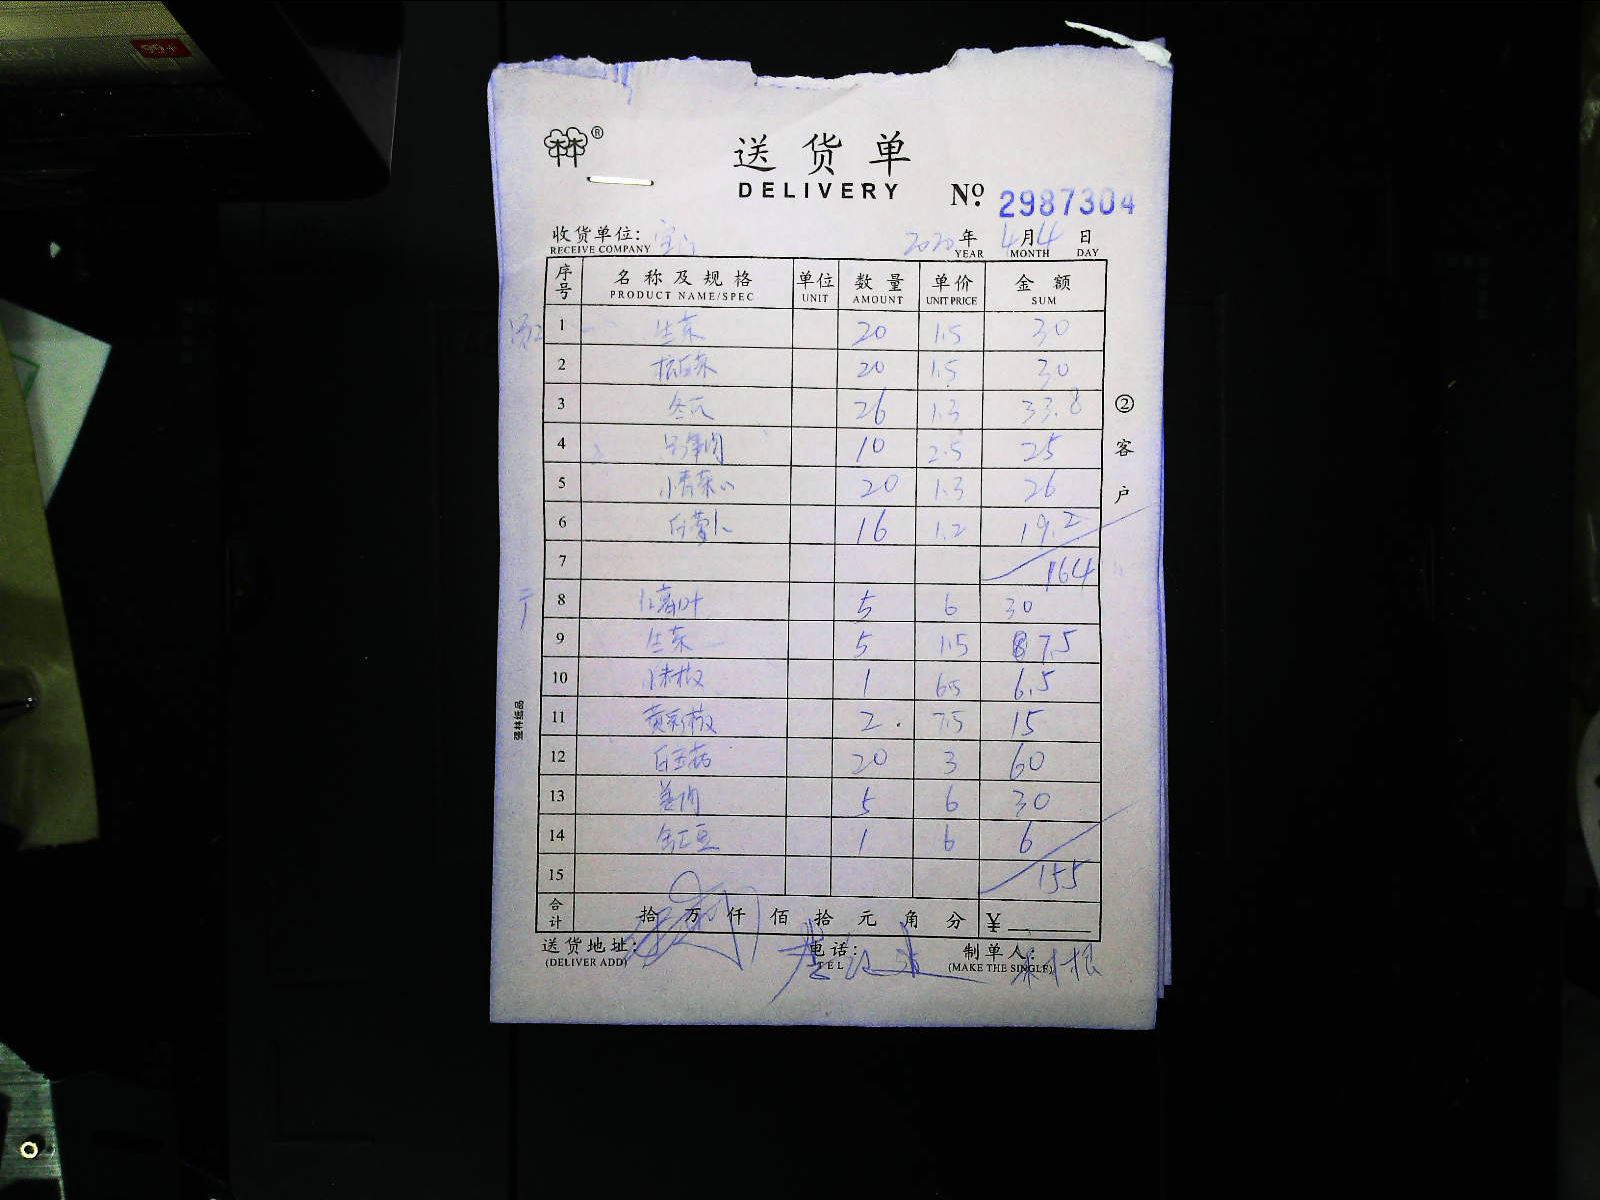 99+
®
送货单
DELIVERY
№ 2987304
收货单位: 2020年4月4日
RECEIVE COMPANY YEAR MONTH DAY
序号 名称及规格 单位 数量 单价 金额
PRODUCT NAME/SPEC UNIT AMOUNT UNIT PRICE SUM
1 生菜 20 1.5 30
2 20 1.5 30
3 冬瓜 26 1.3 33.8
4 10 2.5 25
5 小青菜心 20 1.3 26
6 白萝卜 16 1.2 19.2
7 164
8 5 6 30
9 生菜 5 1.5 7.5
10 1 6.5 6.5
11 黄彩椒 2 7.5 15
12 白玉菇 20 3 60
13 姜肉 5 6 30
14 缸豆 1 6 6
15 155
合计 拾万仟佰拾元角分 ¥
送货地址: 电话: 制单人:
(DELIVER ADD) TEL (MAKE THE SINGLE)
②客户
强林纸品